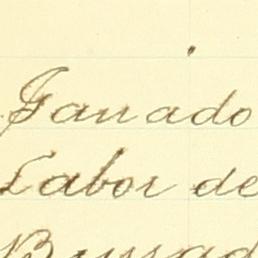 Ganado
Labor de